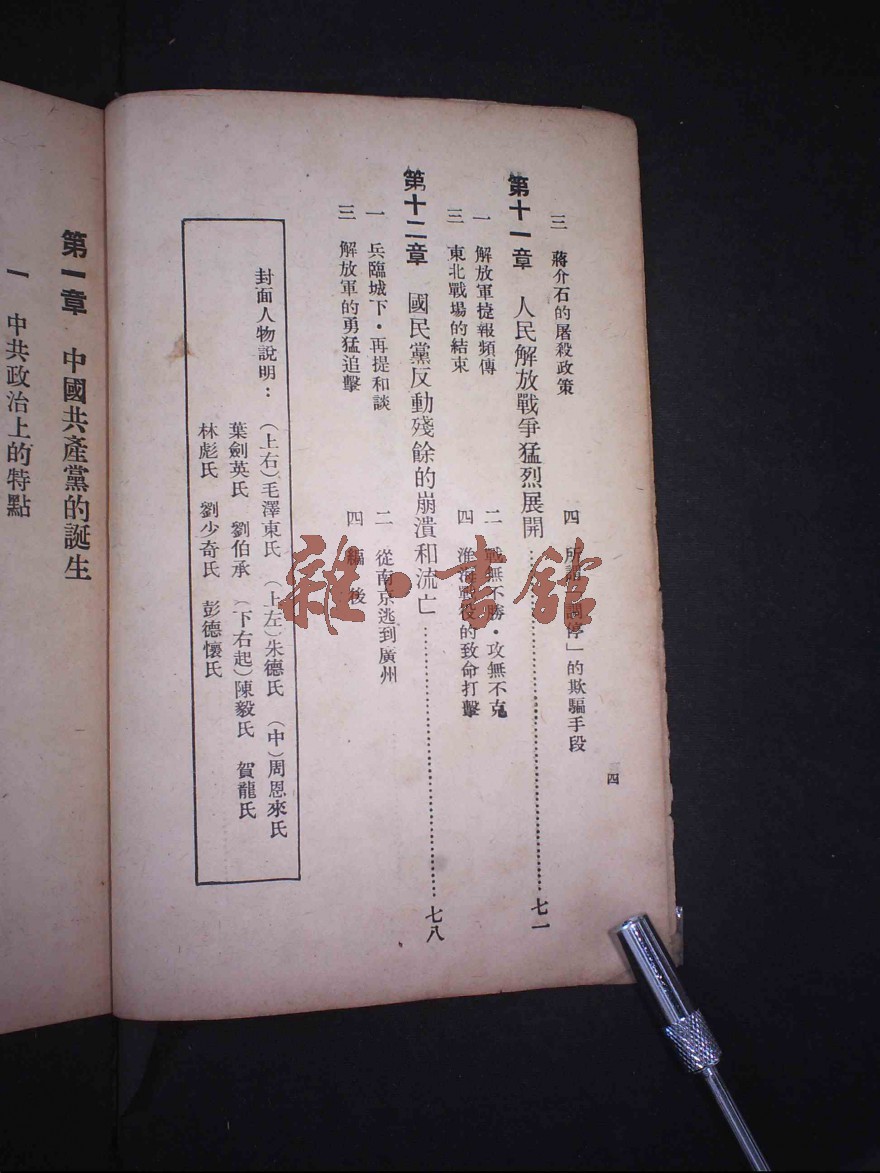 三 蔣介石的屠殺政策
四 所謂「調停」的欺騙手段
四
第十一章 人民解放戰爭猛烈展開……七一
一 解放軍捷報頻傳
二 戰無不勝・攻無不克
三 東北戰場的結束
四 淮海戰役的致命打擊
第十二章 國民黨反動殘餘的崩潰和流亡……七八
一 兵臨城下・再提和談
二 從南京逃到廣州
三 解放軍的勇猛追擊
四 編後
封面人物說明：(上右)毛澤東氏 (上左)朱德氏 (中)周恩來氏
葉劍英氏 劉伯承 (下右起)陳毅氏 賀龍氏
林彪氏 劉少奇氏 彭德懷氏
第一章 中國共產黨的誕生
一 中共政治上的特點
雜・書館